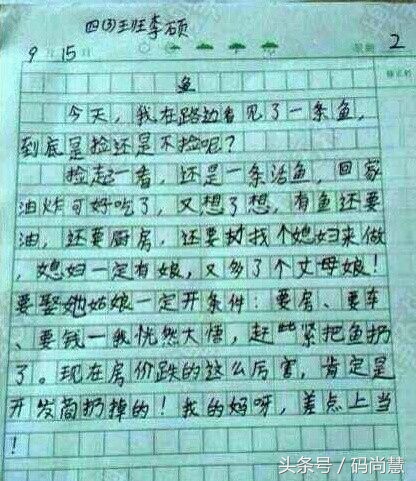 四(3)班李硕
9月15日 星期 2
鱼
今天，我在路边看见了一条鱼，
到底是捡还是不捡呢？
捡起一看，还是一条活鱼，回家
油炸可好吃了，又想了想，有鱼还要
油，还要厨房，还要找个媳妇来做
，媳妇一定有娘，又多了个丈母娘！
要娶她姑娘一定开条件：要房、要车
、要钱—我恍然大悟，赶紧把鱼扔
了。现在房价跌的这么厉害，肯定是
开发商扔掉的！我的妈呀，差点上当
！
头条号/码尚慧